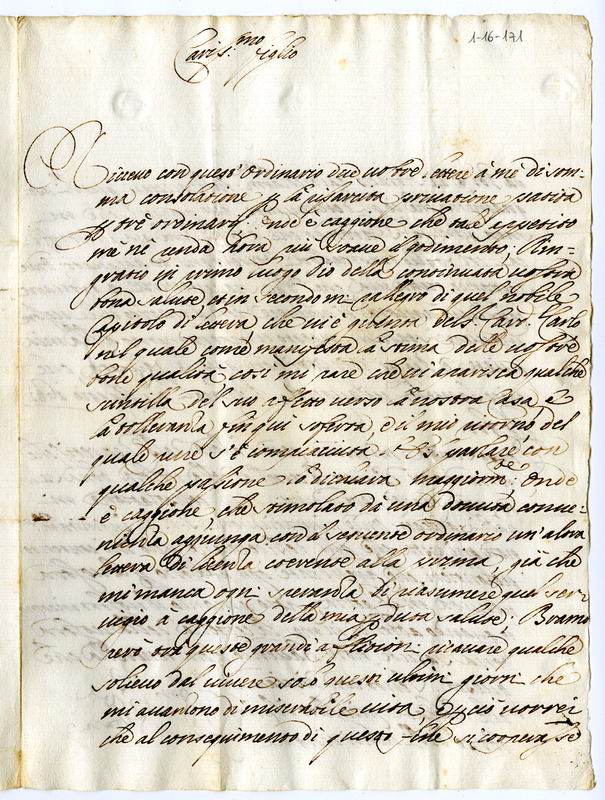 1-16-171
Caris.mo Figlio
Riceuo con quest' ordinario due uostre lettere à mè di som-
ma consolatione p la risarcita priuatione patita
p trè ordinarj, e nè è caggione che tale appetito
mè nè renda hora più soaue il godimento; Rin-
gratio in primo luogo Dio della continuata uostra
bona salute, et in secondo mi rallegro di quel nobile
Capitolo di lettera che ui è del S. Carlo
nel quale come manifesta la stima delle uostre
bone qualità così mi pare che ui apparisca qualche
scintilla del suo affetto uerso la nostra Casa, e
la tolleranza fin qui soferta, e il mio ritorno del
quale pure s'è compiaciuta S. parlare con
qualche passione lo dichiara maggiorm.te: Onde
è caggione che stimolato dà una douuta conue-
nienza aggiunga con il presente ordinario un'altra
lettera di licenza coerente alla prima, già che
mi manca ogni speranza di riasumere quel ser-
uigio à caggione della mia perduta salute: Bramo
però trà queste grandi aflitioni ricauare qualche
solieuo dal uiuere solo questi ultimi giorni che
mi auanzono di miserabile uita, p ciò uorrei
che al conseguimento di questo fine si cooperasse